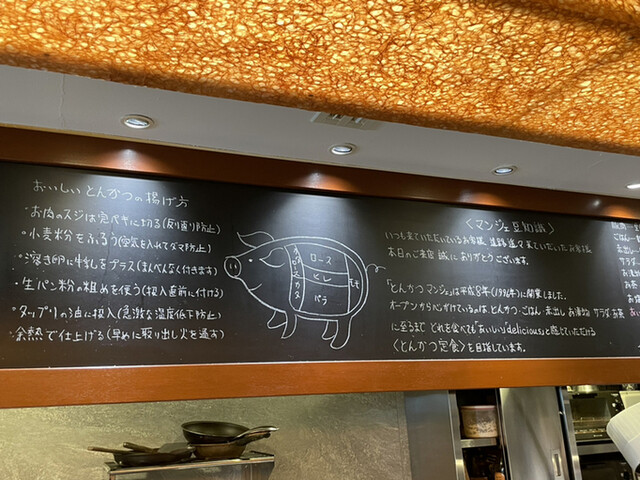 おいしいとんかつの揚げ方
・お肉のスジは完ペキに切る(反り返り防止)
・小麦粉をふるう(空気を入れてダマ防止)
・溶き卵に牛乳をプラス(まんべんなく付きます)
・生パン粉の粗めを使う(投入直前に付ける)
・タップリの油に投入(急激な温度低下防止)
・余熱で仕上げる(早めに取り出し火を通す)
ロース
ヒレ
バラ
モモ
〈マンジェ豆知識〉
いつも来ていただいているお客様、遠路遥々来ていただいたお客様
本日のご来店 誠に ありがとうございます。
「とんかつ マンジェ」は平成8年(1996年)に開業しました。
オープンから心がけているのは、とんかつ・ごはん・赤出し お漬物 サラダ お茶
に至るまで どれを食べても「おいしい」「delicious」と感じていただける
〈とんかつ定食〉を目指しています。